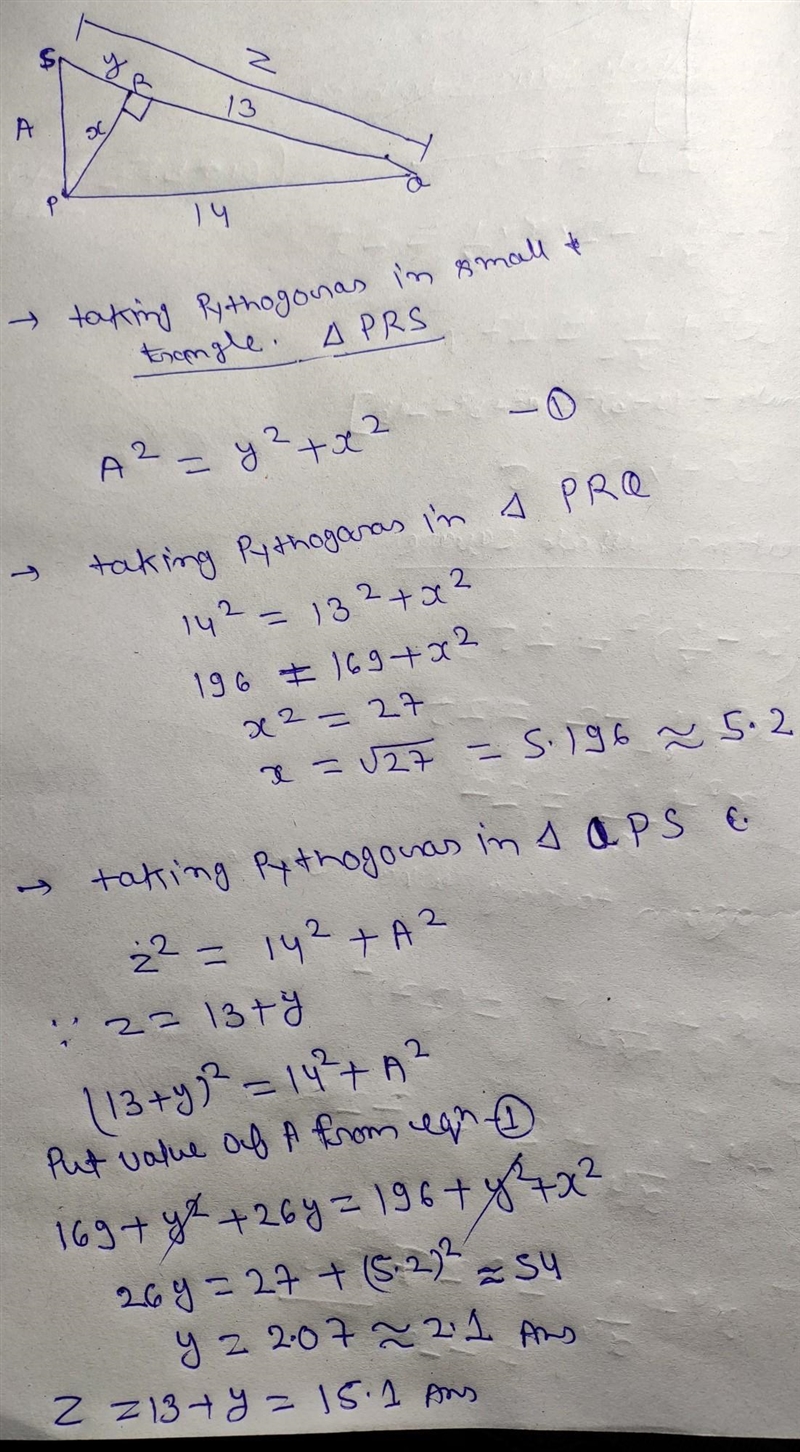 S y R z
A x 13
P 14 Q
→ taking Pythogoras in small
triangle. Δ PRS
A² = y² + x² — ①
→ taking Pythogoras in Δ PRQ
14² = 13² + x²
196 = 169 + x²
x² = 27
x = √27 = 5.196 ≈ 5.2
→ taking Pythogoras in Δ QPS
z² = 14² + A²
∵ z = 13 + y
(13+y)² = 14² + A²
Put value of A from eqn - ①
169 + y² + 26y = 196 + y² + x²
26y = 27 + (5.2)² ≈ 54
y = 2.07 ≈ 2.1 Ans
z = 13 + y = 15.1 Ans